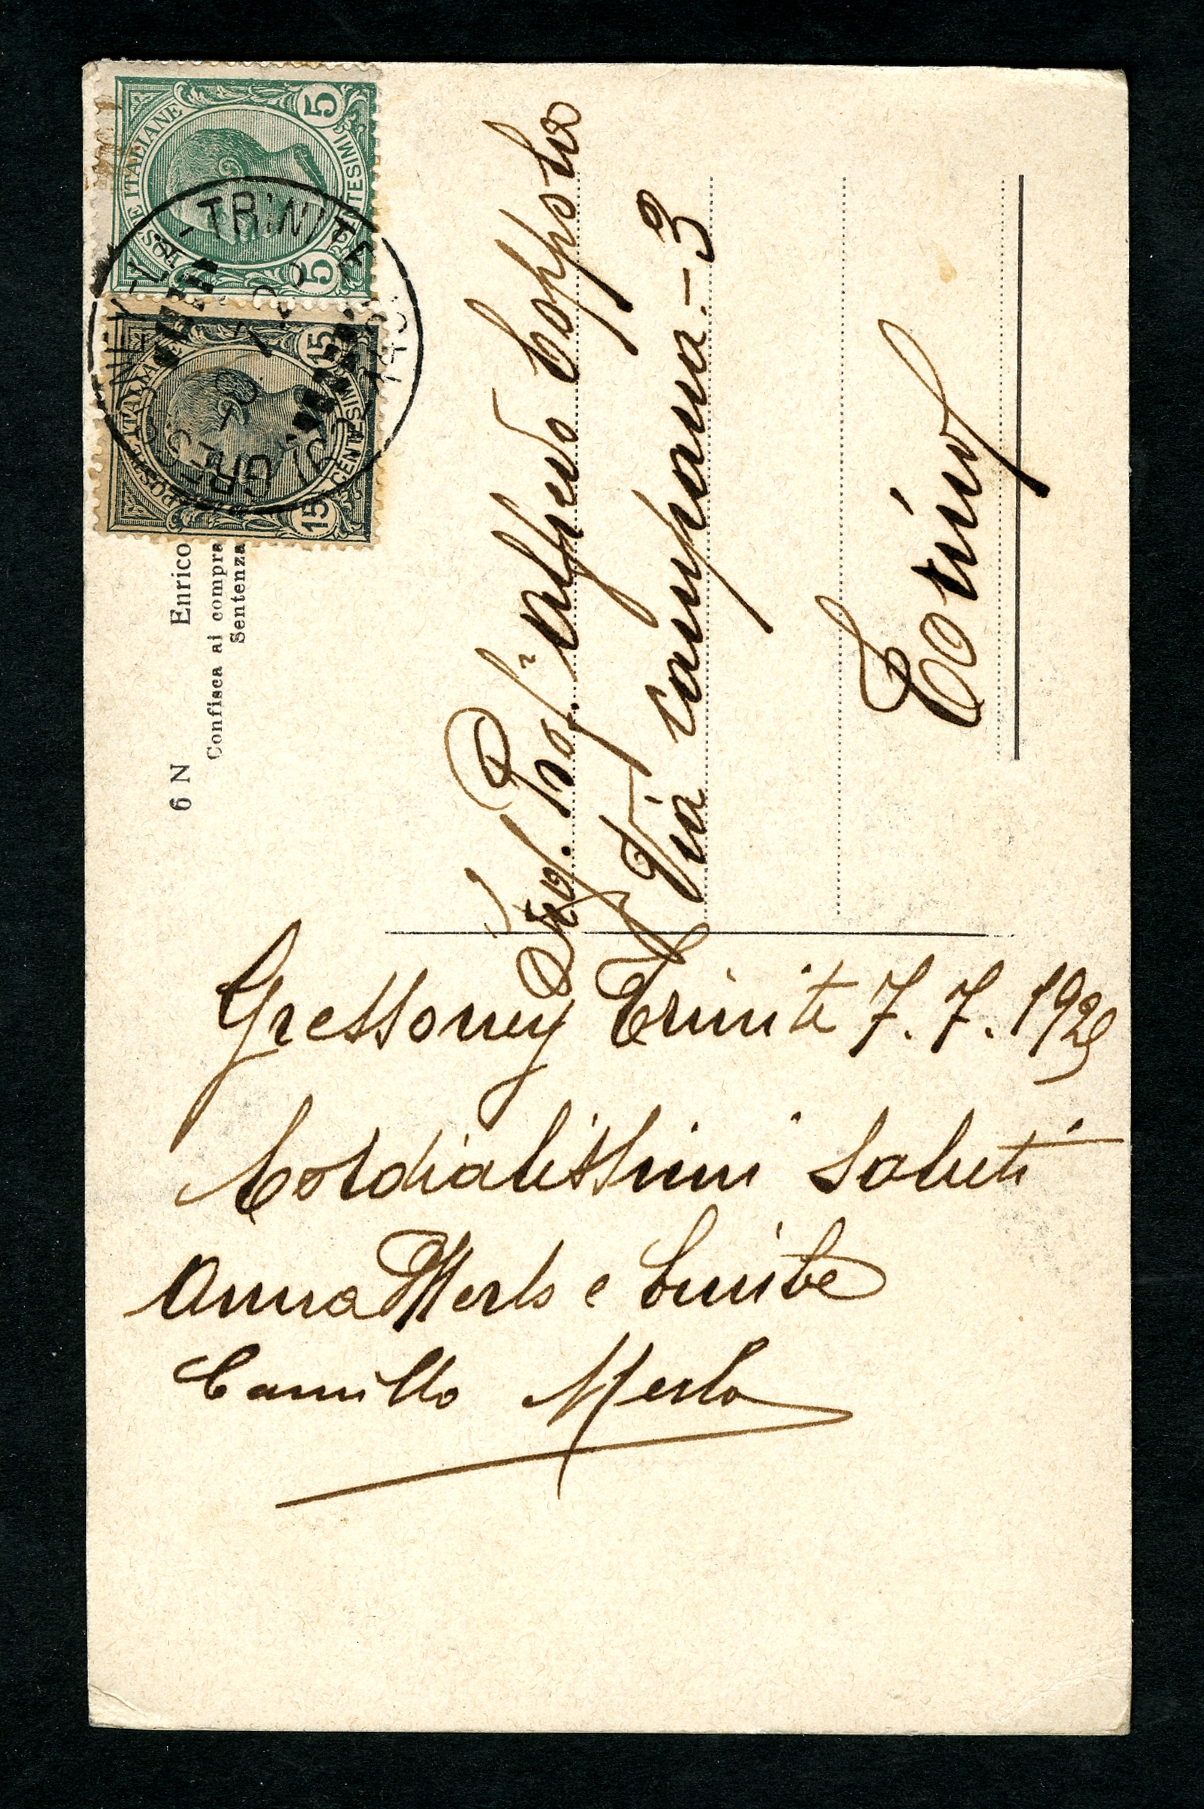 Gressoney Trinité 7.7.1929
Cordialissimi Saluti
Anna Merlo e
Camillo Merlo
Prof. Alfredo Coppola
Via Campana - 3
Torino
6 N Enrico
Confisca ai compra
Sentenza
POSTE ITALIANE
5 CENTESIMI 5
POSTE ITALIANE
15 CENTESIMI 15
GRESSONEY-LA-TRINITE